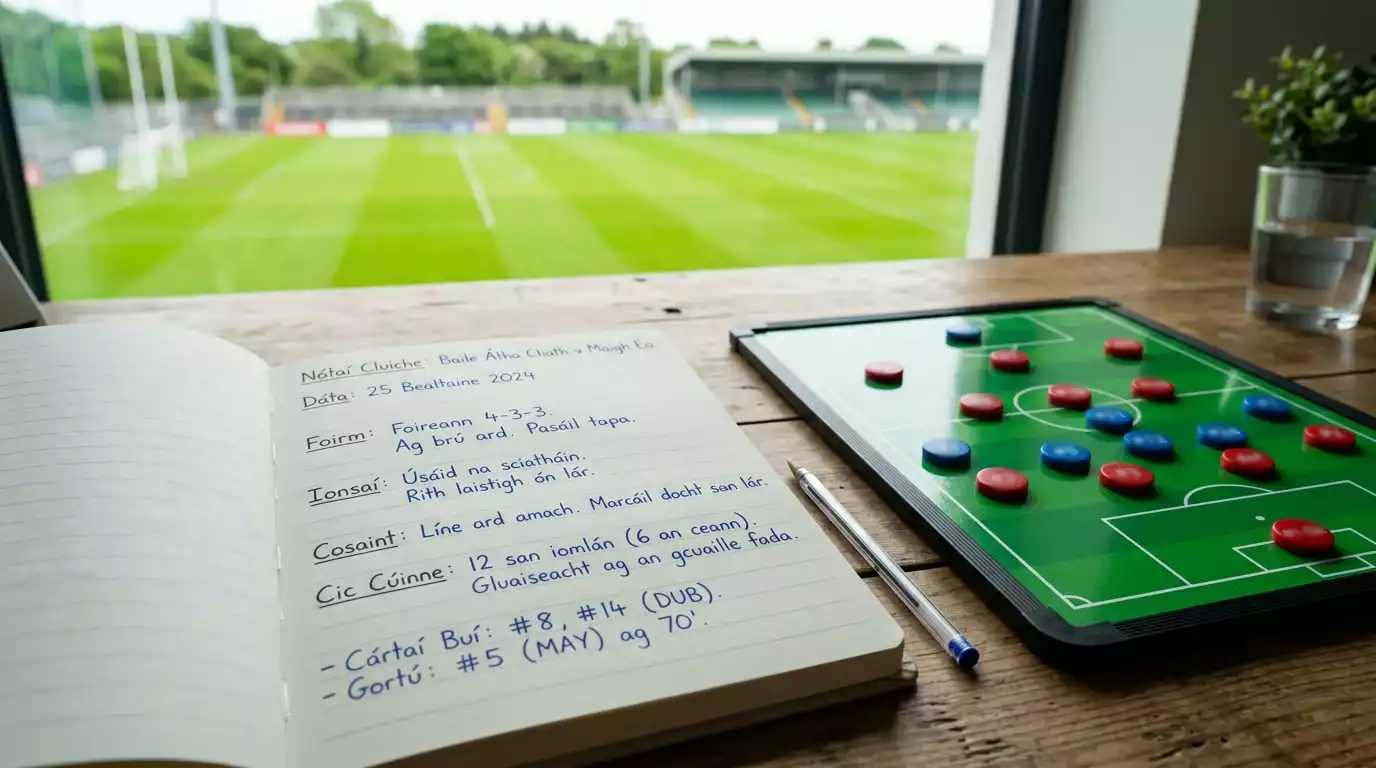 Nótaí Cluiche: Baile Átha Cliath v Maigh Eo
Dáta: 25 Bealtaine 2024
Foirm: Foireann 4-3-3.
Ag brú ard. Pasáil tapa.
Ionsaí: Úsáid na sciatháin.
Rith laistigh ón lár.
Cosaint: Líne ard amach. Marcáil docht san lár.
Cic Cúinne: 12 san iomlán (6 an ceann).
Gluaiseacht ag an gcuaille fada.
- Cártaí Buí: #8, #14 (DUB).
- Gortú: #5 (MAY) ag 70'.